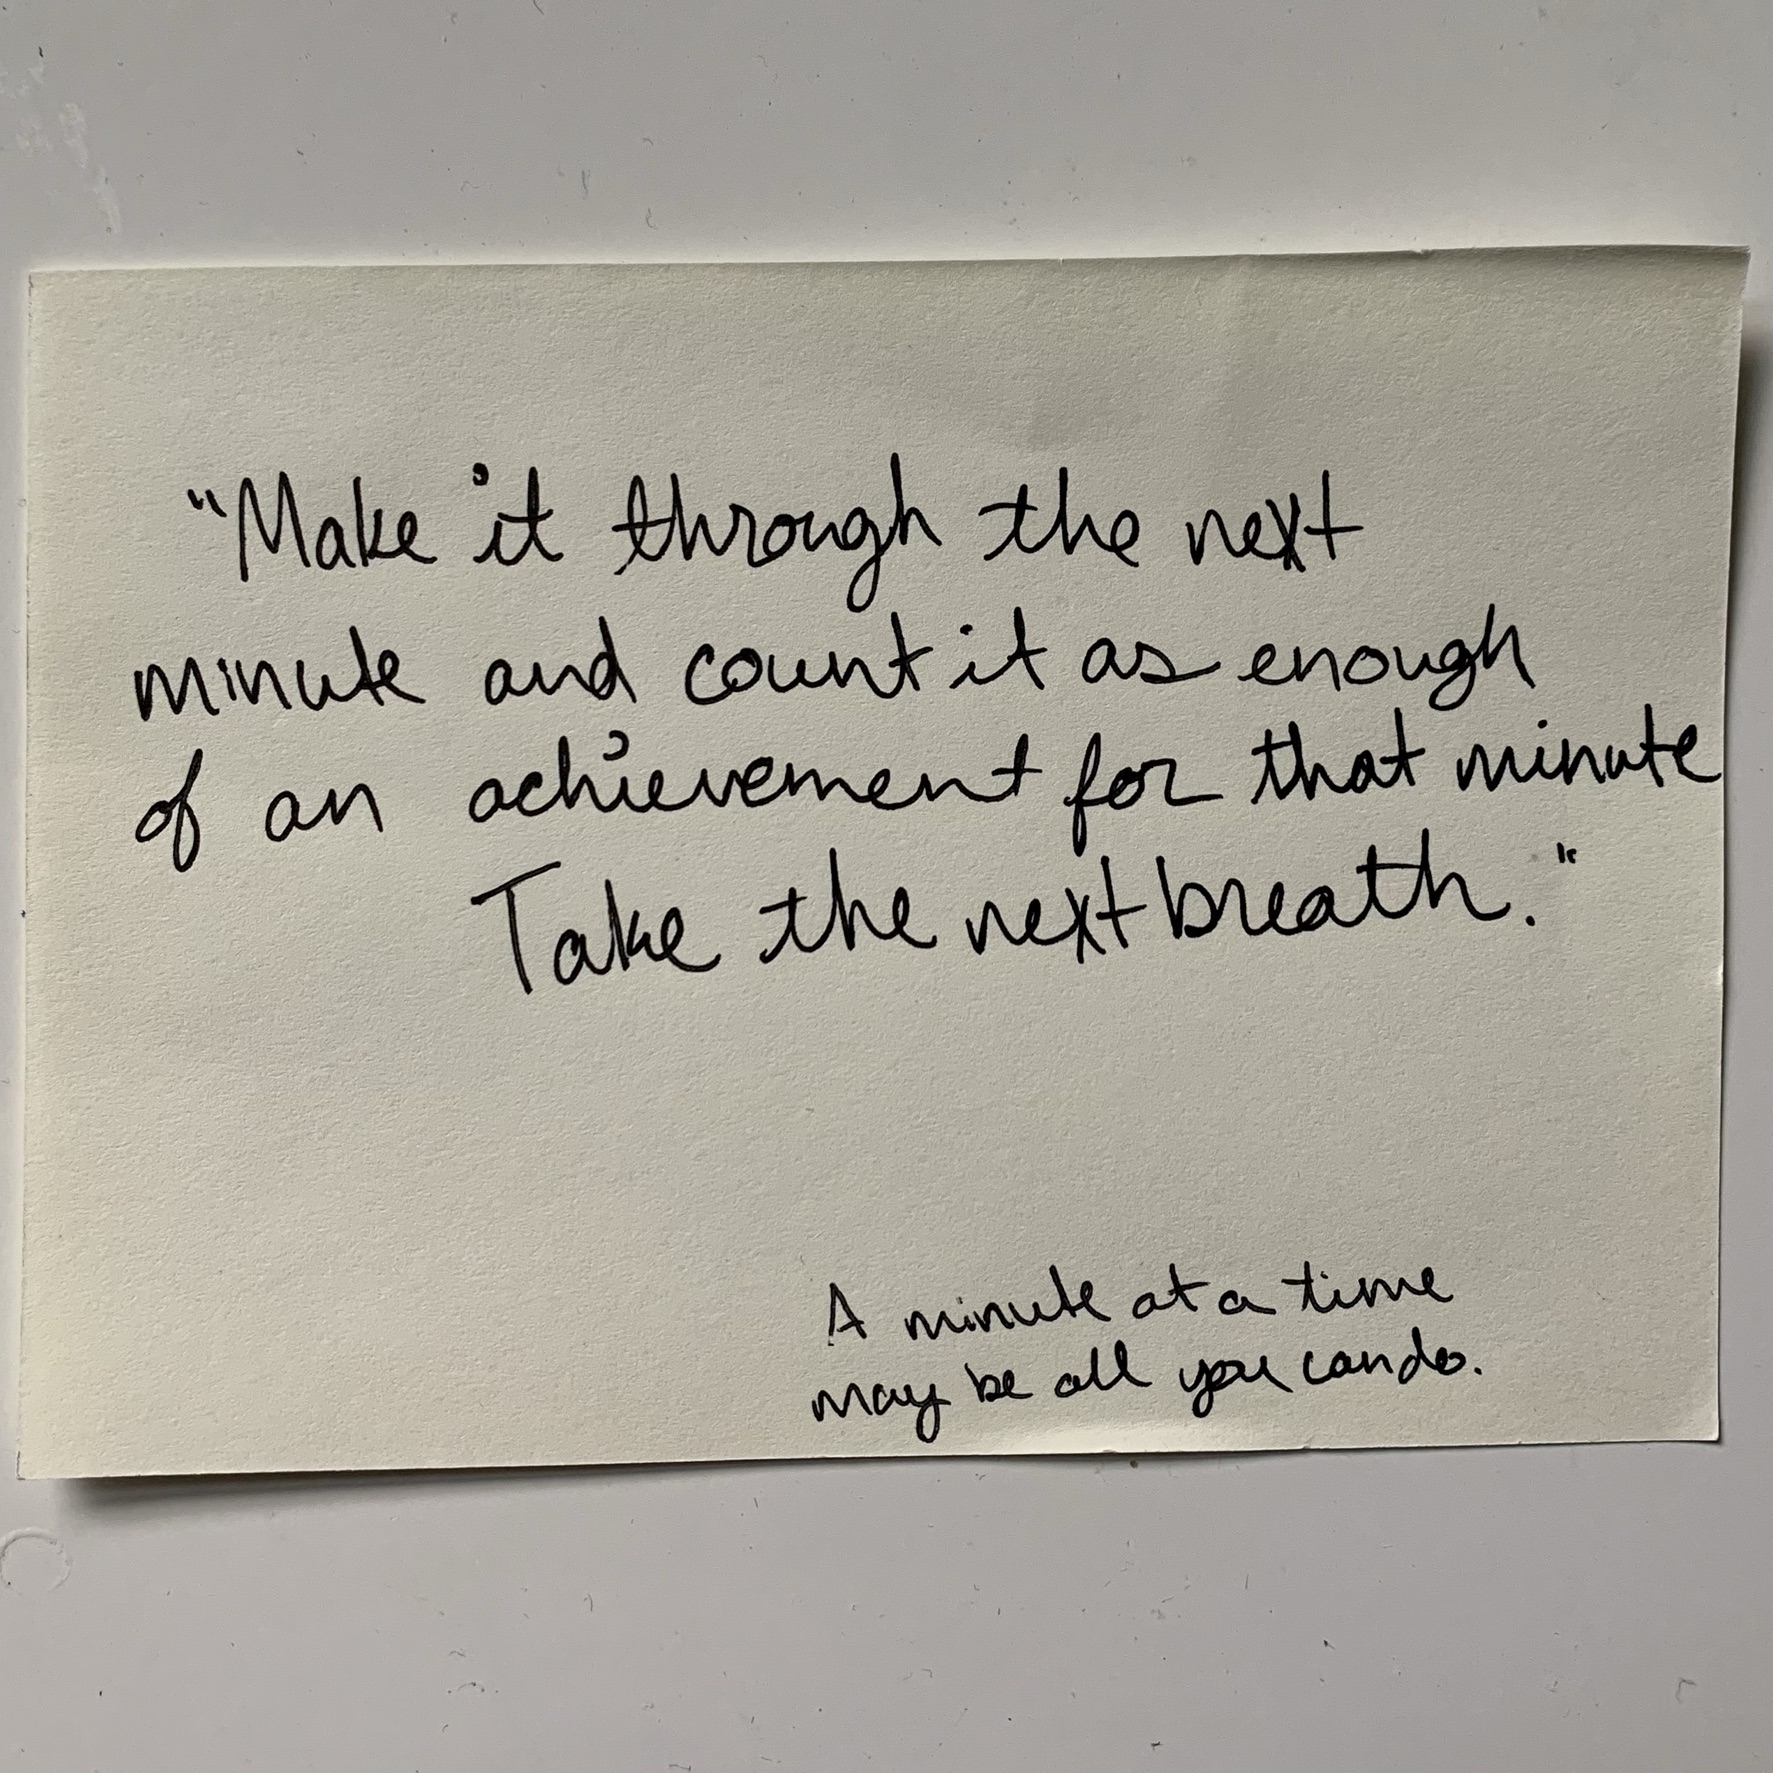 "Make it through the next
minute and count it as enough
of an achievement for that minute
Take the next breath."
A minute at a time
may be all you can do.